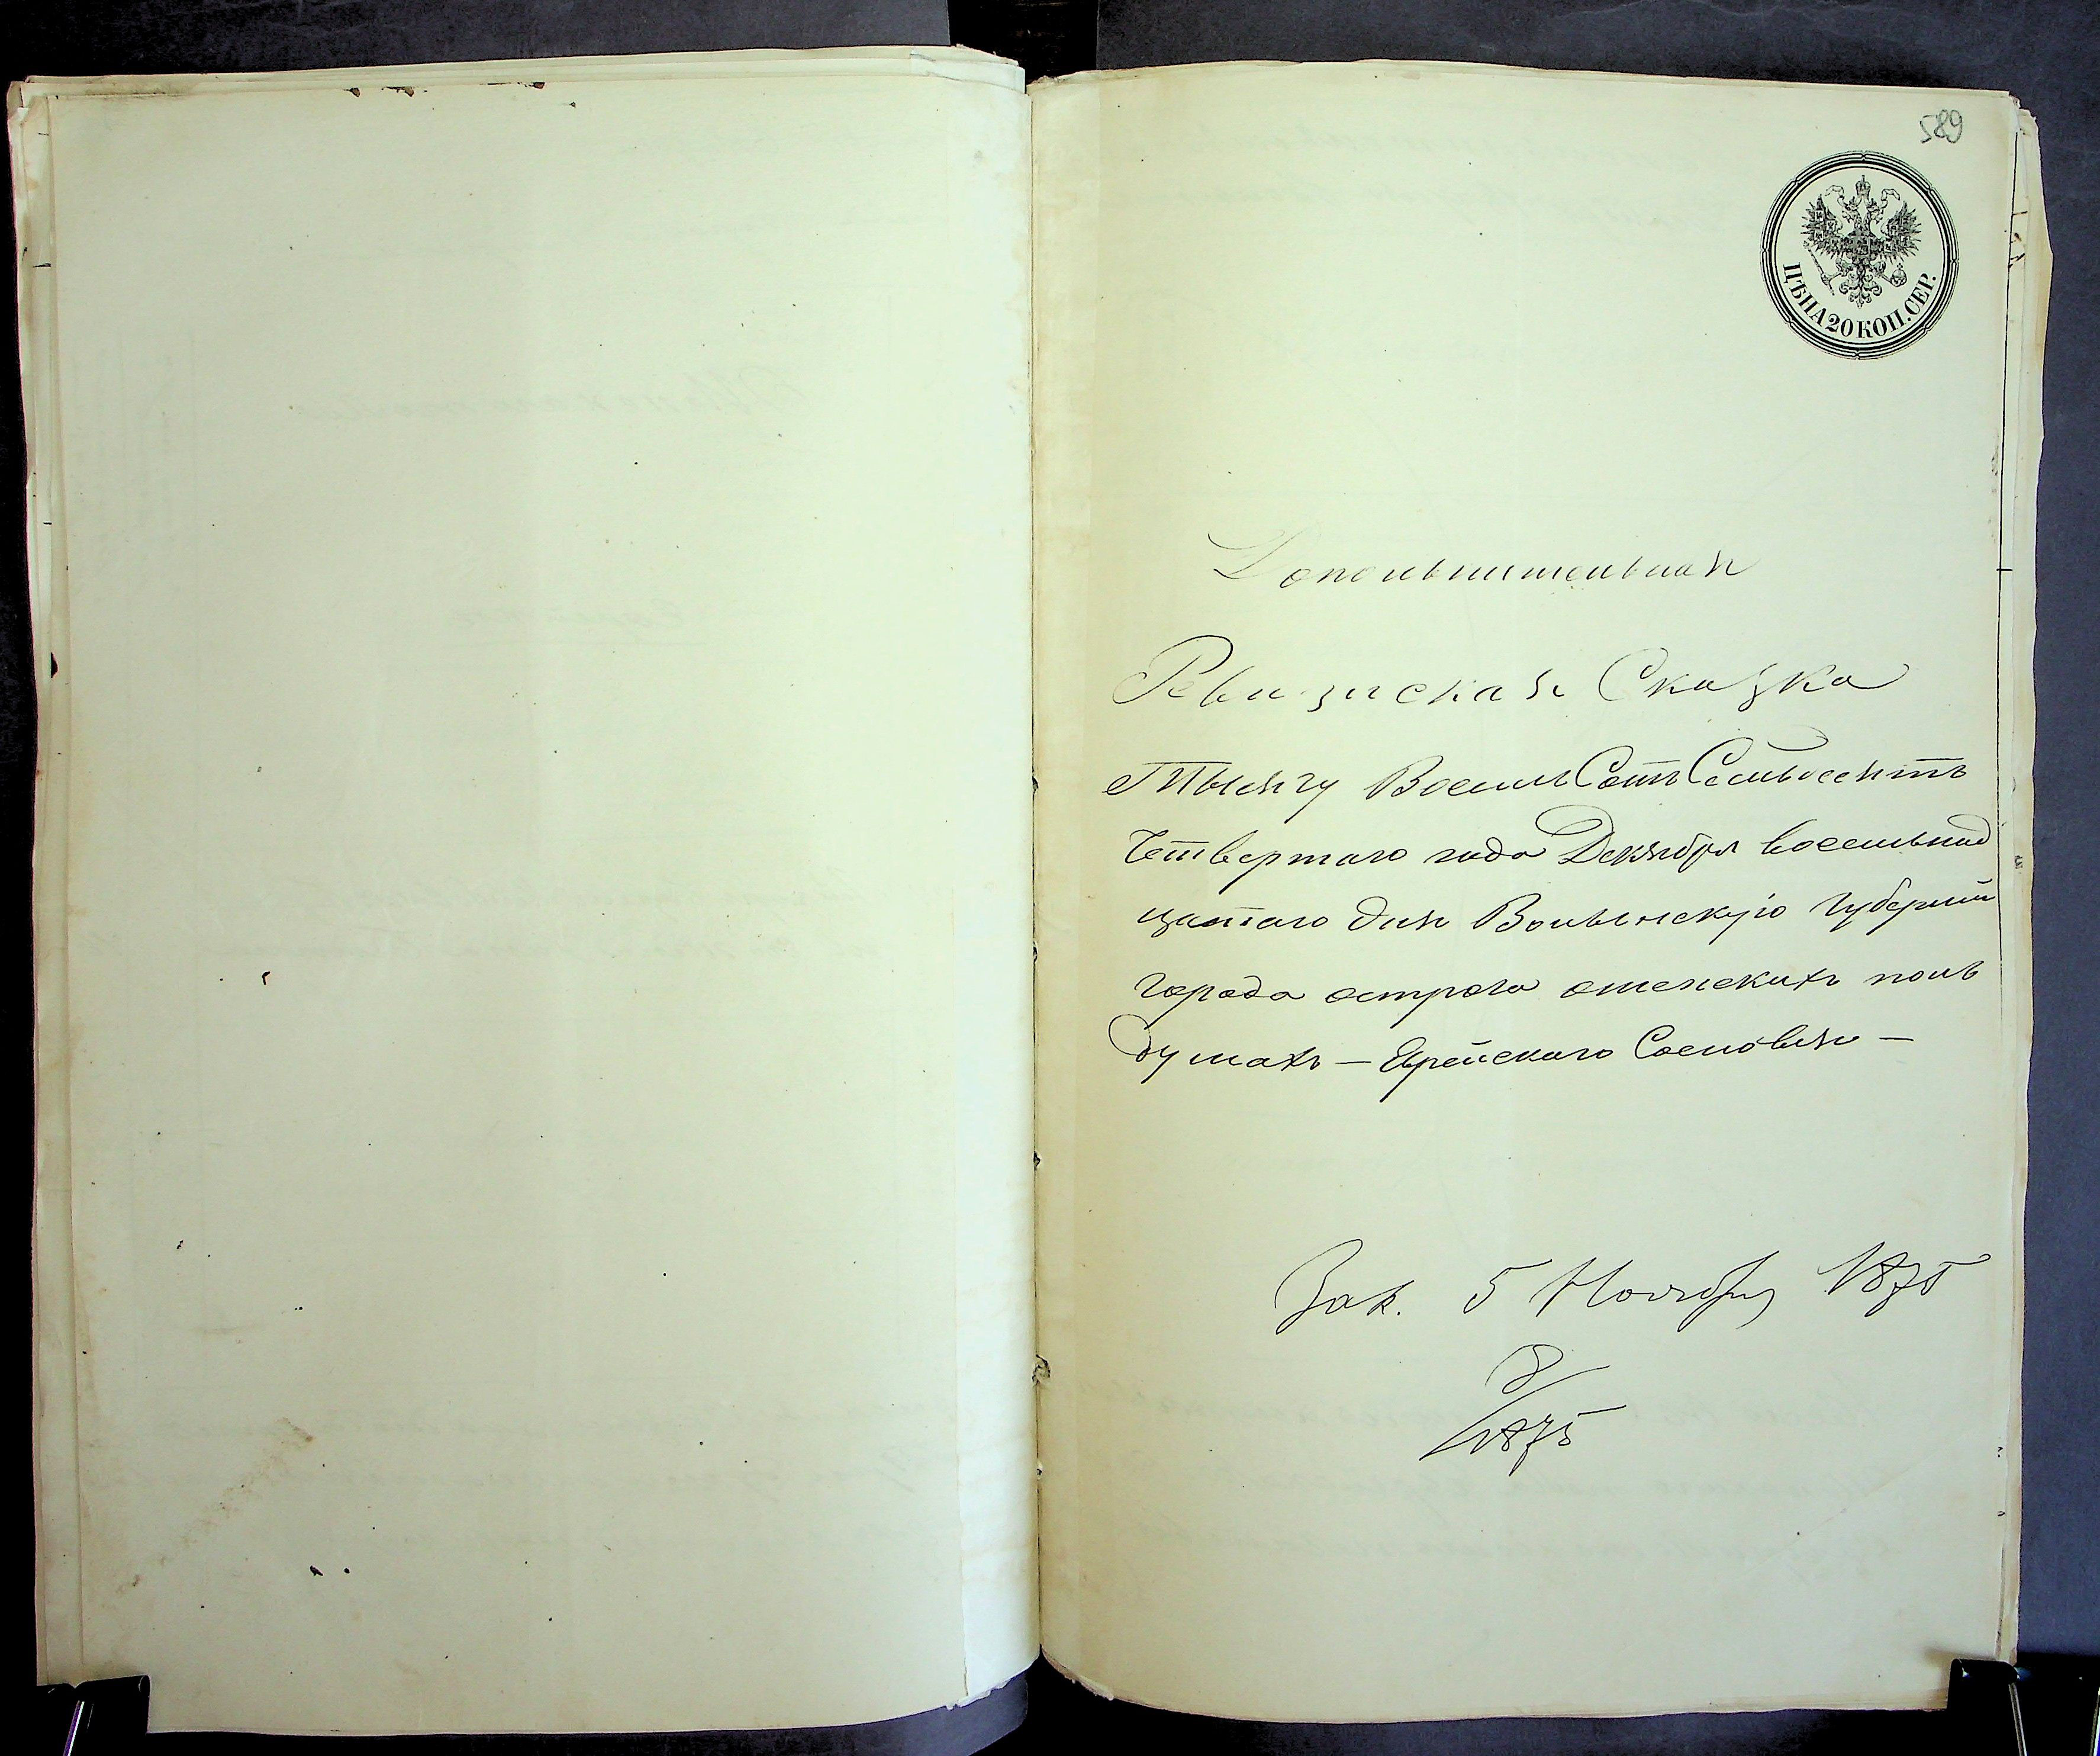 589
ЦѢНА 20 КОП. СЕР.
Дополнительная
Ревизская Сказка
Тысячу Восемь Сотъ Семьдесятъ
Четвертаго года Декября восемнад
цатаго дня Волынскую губернии
города острога о женскихъ полъ
душахъ — Еврейскаго Сословия —
Зак. 5 Ноября 1875
8/1875